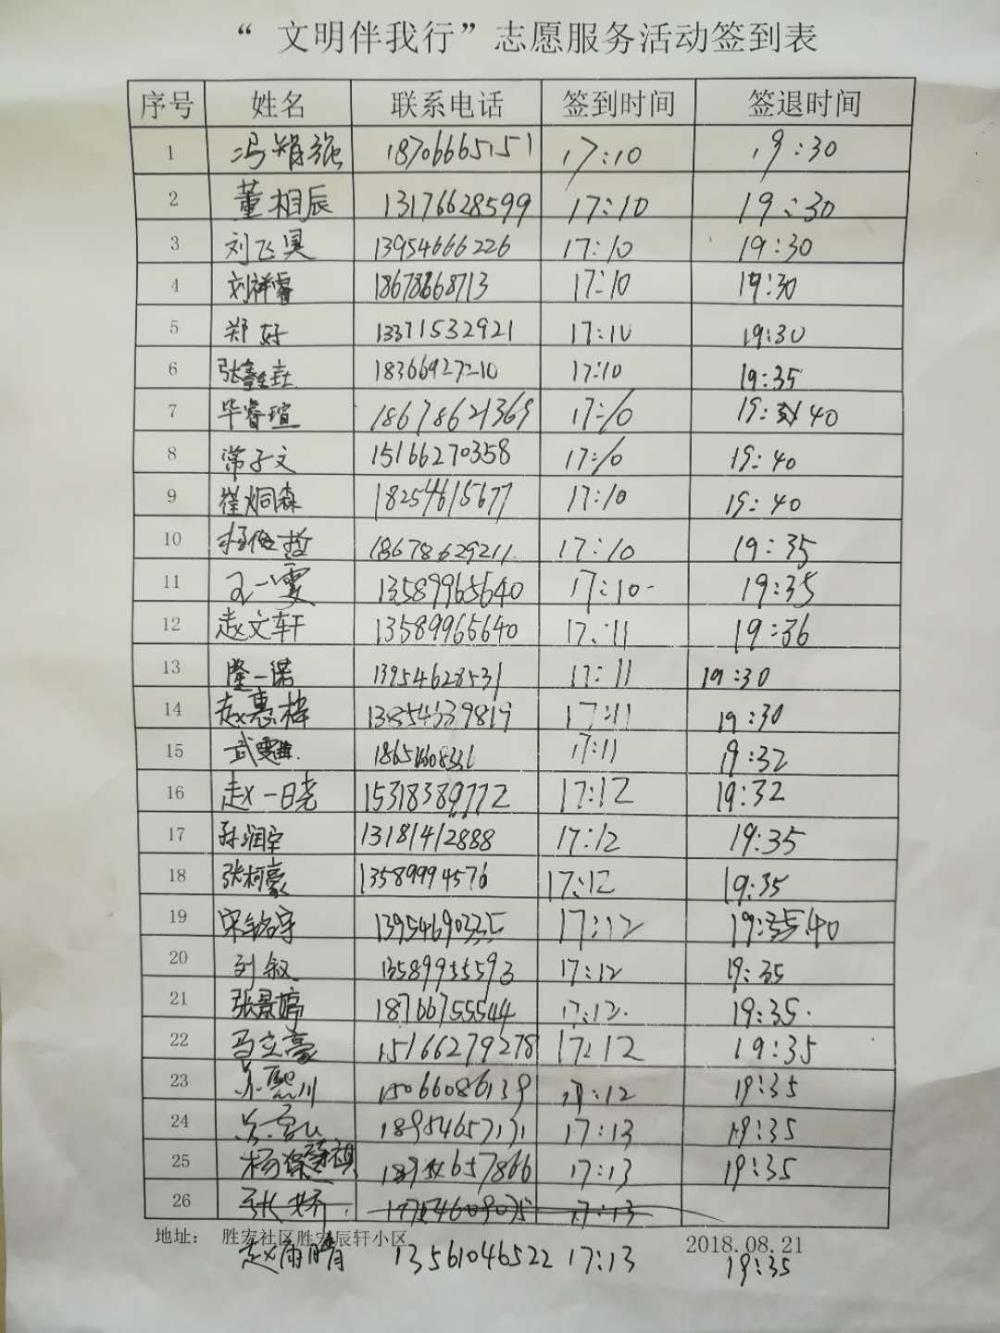 “ 文明伴我行”志愿服务活动签到表
序号 姓名 联系电话 签到时间 签退时间
1 18706665151 17:10 19:30
2 董相辰 13176628599 17:10 19:30
3 刘飞 13954666226 17:10 19:30
4 刘祥睿 18678668713 17:10 19:30
5 郑好 13371532921 17:10 19:30
6 17:10 19:35
7 毕睿瑄 18678621369 17:10 19: 40
8 常子文 15166270358 17:10 19:40
9 崔炯森 18254615677 17:10 19:40
10 18678629211 17:10 19:35
11 王一雯 13589965640 17:10 19:35
12 赵文轩 13589965640 17:11 19:36
13 隆一诺 13954628531 17:11 19:30
14 赵惠梓 17:11 19:30
15 武 17:11 19:32
16 赵一晓 15318389772 17:12 19:32
17 孙润宇 13181412888 17:12 19:35
18 张柯豪 13589994576 17:12 19:35
19 宋铭宇 13954690335 17:12 19:35 40
20 刘叙 13589955593 17:12 19:35
21 张景婷 18766755544 17:12 19:35
22 马立豪 15166279278 17:12 19:35
23 苏熙川 15066086139 17:12 19:35
24 18954657171 17:13 19:35
25 杨 17:13 19:35
26 张 17:13
地址: 胜宏社区胜宏辰轩小区 2018.08.21
赵雨晴 13561046522 17:13 19:35